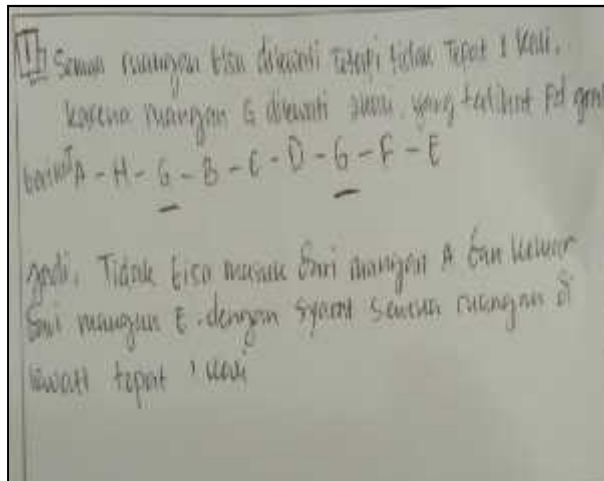 1 Semua ruangan bisa dilewati tetapi tidak tepat 1 kali.
karena ruangan G dilewati yang terlihat Pd
berikut A - H - G - B - C - D - G - F - E
Jadi, Tidak bisa masuk dari ruangan A dan keluar
dari ruangan E. dengan syarat semua ruangan di
lewati tepat 1 kali